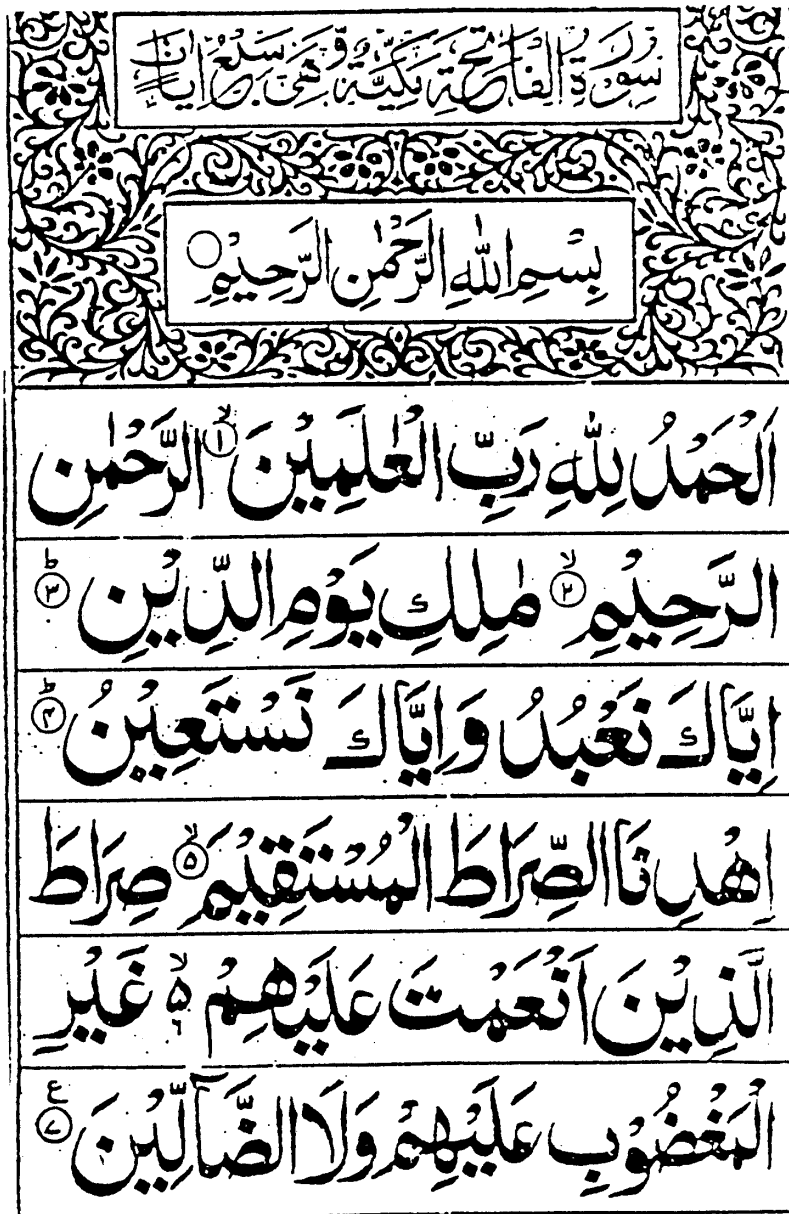 سُوْرَةُ الْفَاتِحَةِ مَكِّيَّةٌ وَّهِيَ سَبْعُ اٰيَاتٍ
بِسْمِ اللّٰهِ الرَّحْمٰنِ الرَّحِيْمِ ○
اَلْحَمْدُ لِلّٰهِ رَبِّ الْعٰلَمِيْنَ ۙ﴿۱﴾ الرَّحْمٰنِ
الرَّحِيْمِ ۙ﴿۲﴾ مٰلِكِ يَوْمِ الدِّيْنِ ؕ﴿۳﴾
اِيَّاكَ نَعْبُدُ وَاِيَّاكَ نَسْتَعِيْنُ ؕ﴿۴﴾
اِهْدِنَا الصِّرَاطَ الْمُسْتَقِيْمَ ۙ﴿۵﴾ صِرَاطَ
الَّذِيْنَ اَنْعَمْتَ عَلَيْهِمْ ۙ۵ ۶ غَيْرِ
الْمَغْضُوْبِ عَلَيْهِمْ وَلَا الضَّآلِّيْنَ ﴿۷﴾ ع